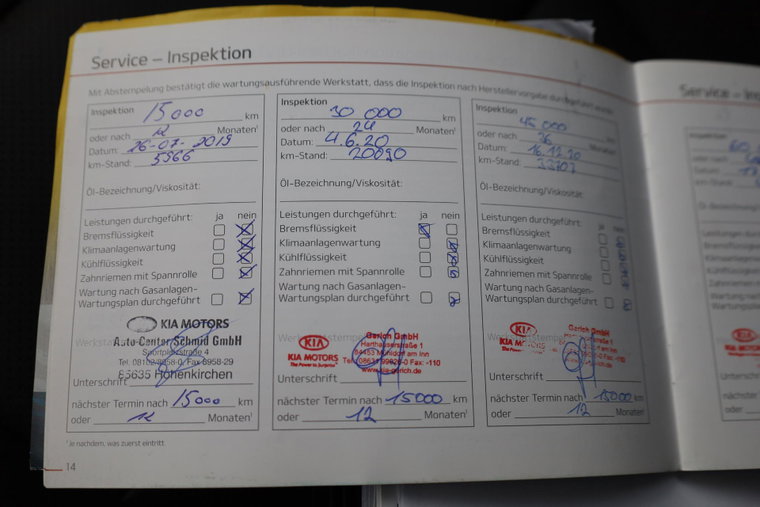 Service – Inspektion
Mit Abstempelung bestätigt die wartungsausführende Werkstatt, dass die Inspektion nach Herstellervorgabe durchgeführt
Inspektion 15000 km
oder nach 12 Monaten¹
Datum: 26-07-2019
km-Stand: 5966
Öl-Bezeichnung/Viskosität:
Leistungen durchgeführt: ja nein
Bremsflüssigkeit
Klimaanlagenwartung
Kühlflüssigkeit
Zahnriemen mit Spannrolle
Wartung nach Gasanlagen-
Wartungsplan durchgeführt
KIA MOTORS
Auto-Center Schmid GmbH
Sportplatzstraße 4
85635 Höhenkirchen
Unterschrift
nächster Termin nach 15000 km
oder 12 Monaten¹
Inspektion 30 000 km
oder nach 24 Monaten¹
Datum: 4.6.20
km-Stand: 20090
Öl-Bezeichnung/Viskosität:
Leistungen durchgeführt: ja nein
Bremsflüssigkeit
Klimaanlagenwartung
Kühlflüssigkeit
Zahnriemen mit Spannrolle
Wartung nach Gasanlagen-
Wartungsplan durchgeführt
KIA
KIA MOTORS
The Power to Surprise
Gerich GmbH
84453 Mühldorf am Inn
www.kia-gerich.de
Unterschrift
nächster Termin nach 15000 km
oder 12 Monaten¹
Inspektion 45 000 km
oder nach 36 Monaten¹
Datum: 16.12.20
km-Stand:
Öl-Bezeichnung/Viskosität:
Leistungen durchgeführt: ja nein
Bremsflüssigkeit
Klimaanlagenwartung
Kühlflüssigkeit
Zahnriemen mit Spannrolle
Wartung nach Gasanlagen-
Wartungsplan durchgeführt
KIA
KIA MOTORS
Gerich GmbH
Unterschrift
nächster Termin nach 15000 km
oder 12 Monaten¹
¹ Je nachdem, was zuerst eintritt
14
Service – Ins
Inspektion
oder nach
Datum:
km-Stand:
Öl-Bezeichnung/
Leistungen durch
Bremsflüssigkeit
Klimaanlagenwar
Kühlflüssigkeit
Zahnriemen mit
Wartung nach Ga
Wartungsplan du
KIA
KIA MOTORS
Unterschrift
nächster Term
oder